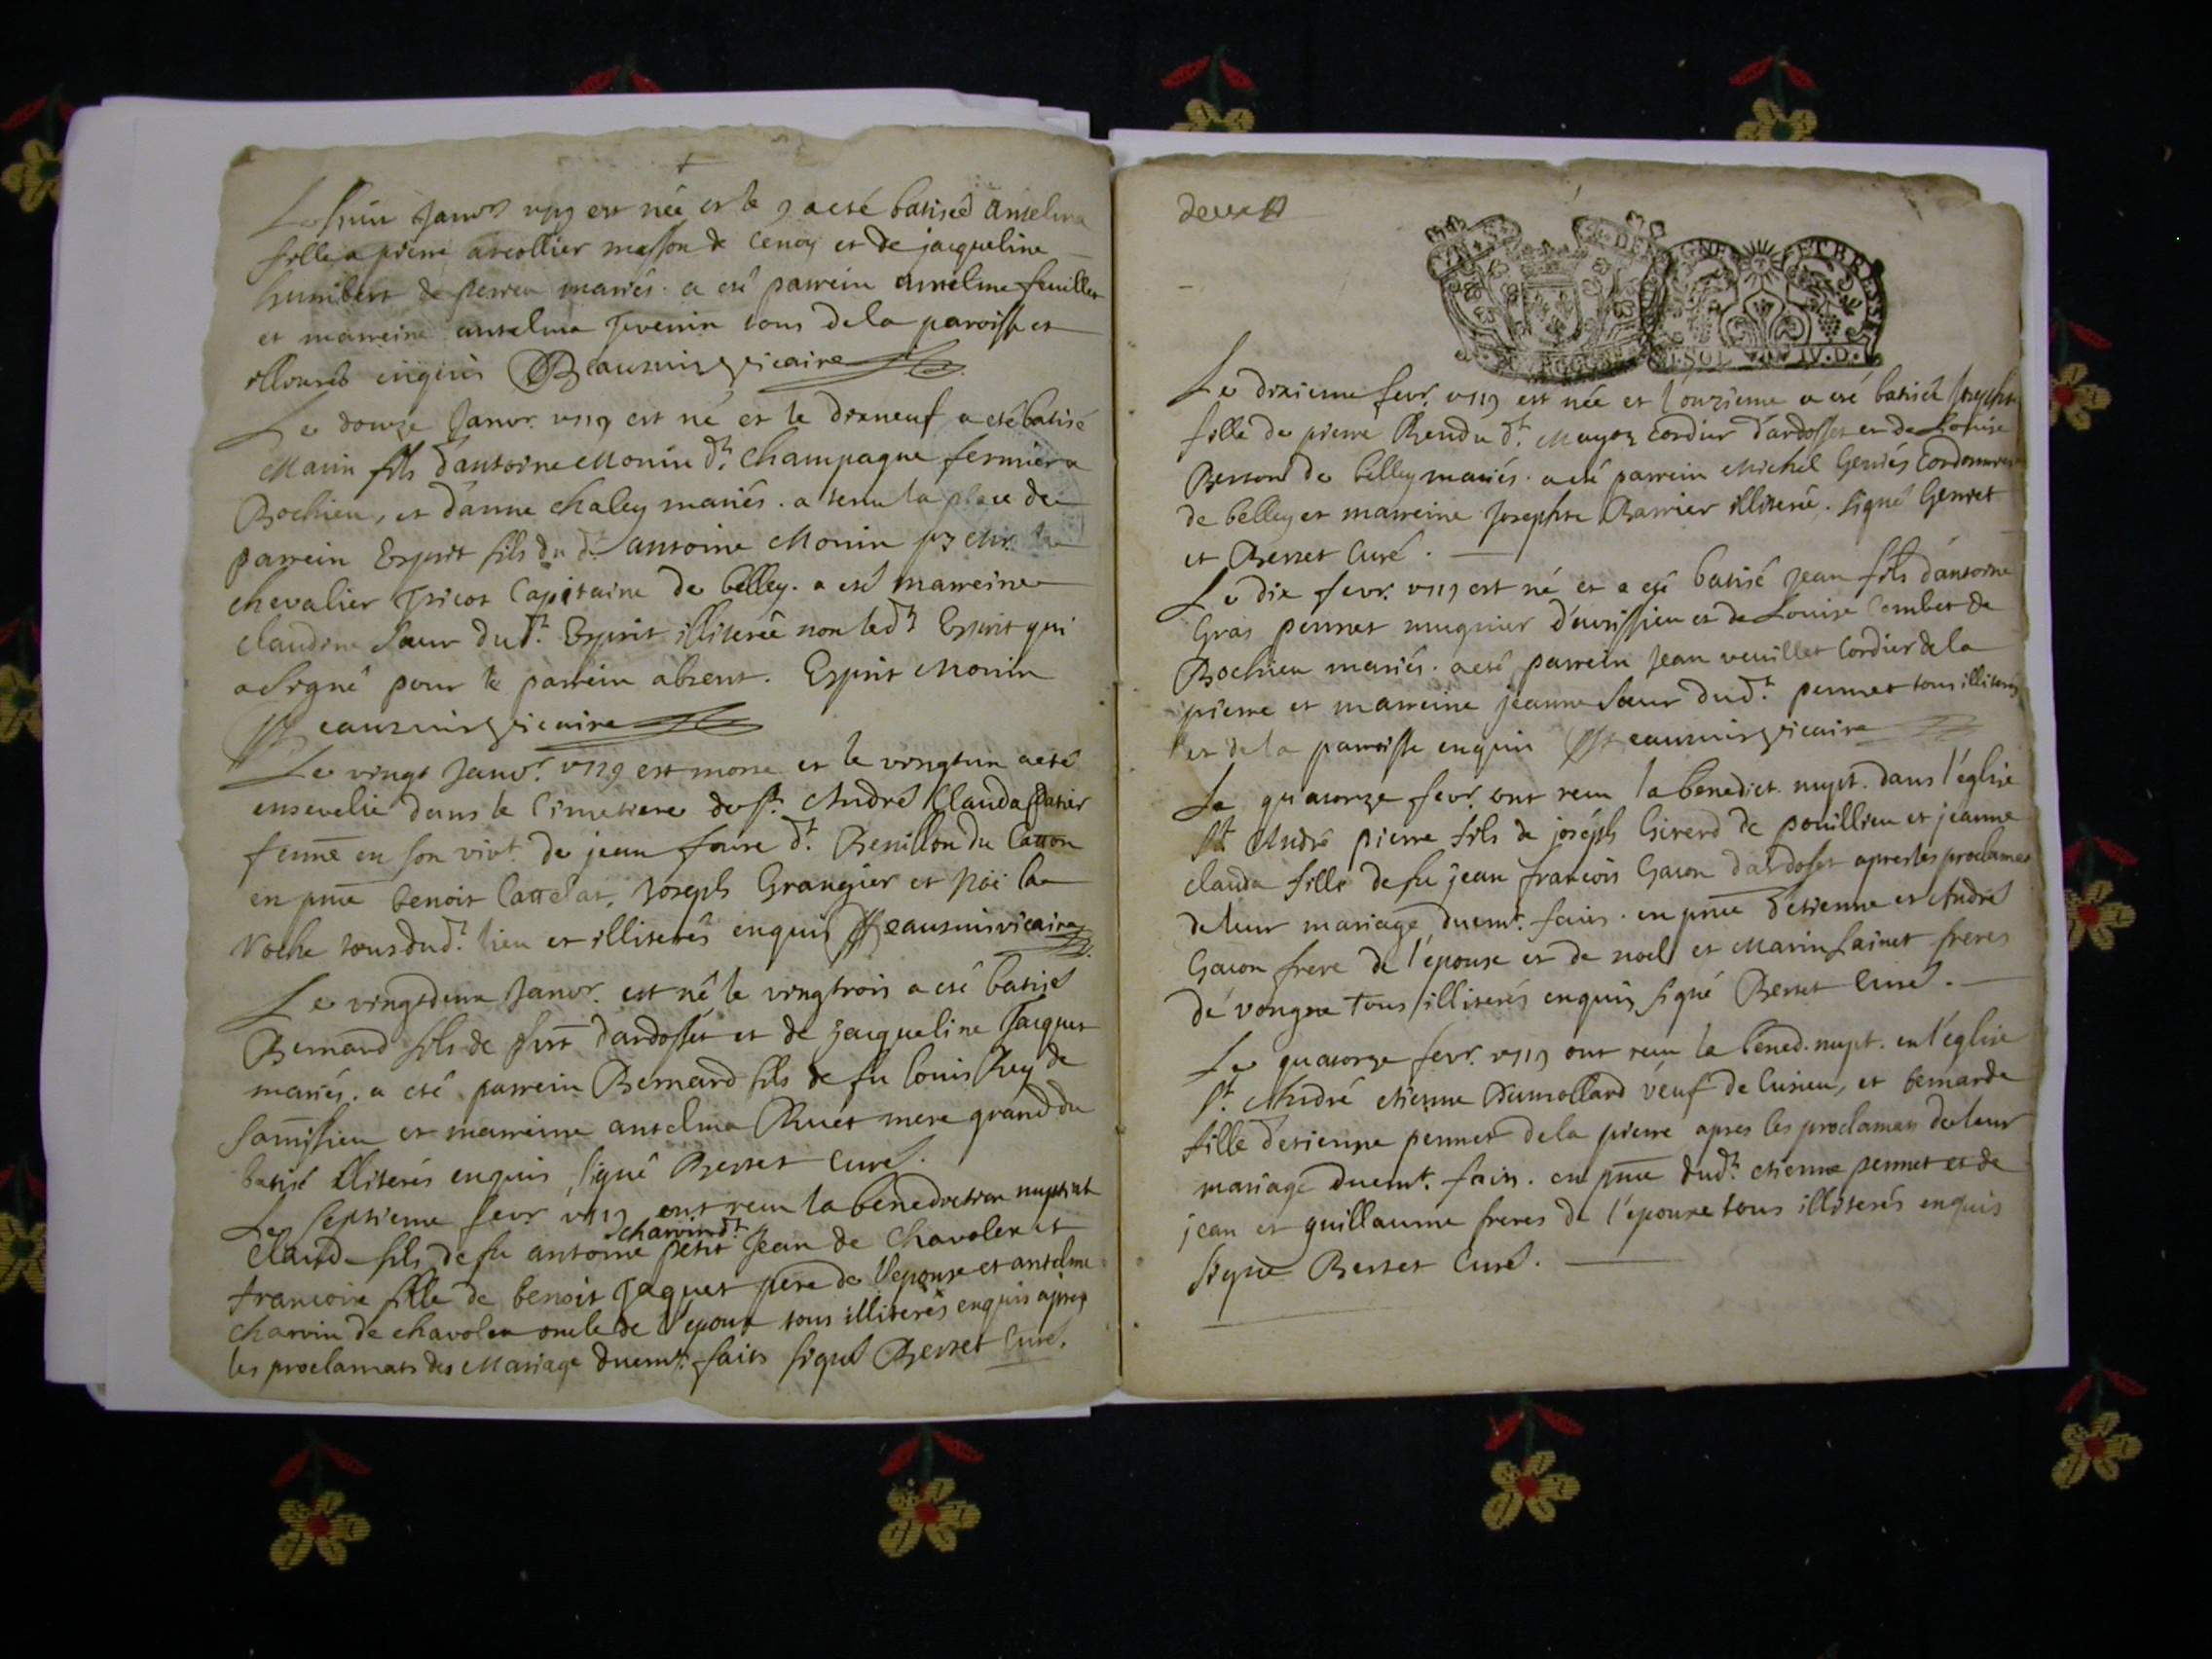 Le huit Janvr v719 est née et le 9 a esté batisée Anselma
fille a pierre ancollier masson de Cenoz et de jacqueline
humbert de perrieu mariés. a esté parrein antelme feuillet
et marreine anselma Jvenin tous dela paroisse et
illiterés enquis Beauvinz vicaire
Le douze Janvr. v719 est né et le dixneuf a esté batisé
Marin fils d'antoine Monin dt. Champagne fermier a
Bochieu, et d'anne Chaley mariés. a tenu la place de
parrein Esprit fils du dt. antoine Monin pr Mr. le
chevalier Tricot Capitaine de belley. a esté marreine
claudine Sœur dudt. Esprit illiterée non ledt Esprit qui
a signé pour le parrein absent. Esprit Monin
Beauvinz vicaire
Le vingt Janvr. v719 est morte et le vingtun a esté
ensevelie dans le Cimetiere de st. André Clauda
femme en son vivt. de jean favre dt. Revillon du Catton
en pnce benoit Cattelat, Joseph Grangier et la
Roche tous dudt. lieu et illiterés enquis Beauvin vicaire
Le vingtdeux Janvr. est né le vingtrois a esté batisé
Bernard fils de dardosset et de Jacqueline Jacquet
mariés. a esté parrein Bernard fils de fu louis Rey de
et marreine anselma Ruet mere grand du
batisé illiterés enquis, signé Berret Curé.
Le septieme fevr v719 ont receu la benediction nuptiale
charvin dt
Claude fils de fu antoine petit Jean de Chavolex et
francoise fille de benoit Jaquet pere de l'epouse et antelme
charvin de chavolex oncle de l'epoux tous illiterés enquis apres
les proclamats des Mariage duemt. faits signé Berret Curé.
deux
Le dixieme fevr. v719 est née et l'onzieme a esté batisée Josephte
fille de pierre Rendu dt. Mayoz Cordier d'ardosset et de Louise
Berron de belley mariés. a esté parrein Michel Genret Cordonnier
de belley et marreine Josephte Barrier illiterée. signé Genret
et Berret Curé.
Le dix fevr. v719 est né et a esté batisé Jean fils d'antoine
Gras pennet mugnier d'evissieu et de Louise Combet de
Bochieu mariés. a esté parrein Jean veuillet Cordier de la
pierre et marreine jeanne sœur dudt. pennet tous illiterés
et de la parroisse enquis Beauvinz vicaire
Le quatorze fevr. ont receu la benedict. nupt. dans l'eglise
st. André pierre fils de joseph Girerd de pouillieu et jeanne
clauda fille de fu jean francois Gacon d'ardosset apres les proclamats
de leur mariage duemt. faits. en pnce d'etienne et André
Gacon frere de l'epouse et de noel et Marin Sainet freres
de vongne tous illiterés enquis, signé Berret Curé.
Le quatorze fevr. v719 ont receu la bened. nupt. en l'eglise
st. André etienne Dumollard veuf de Cusieu, et bernarde
fille d'etienne pennet de la pierre apres les proclamats de leur
mariage duemt. faits. en pnce dudt. etienne pennet et de
jean et guillaume freres de l'epouse tous illiterés enquis
signé Berret Curé.